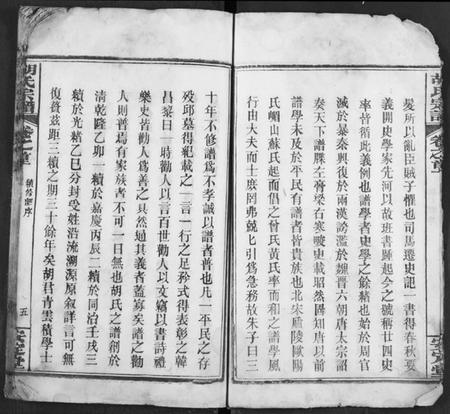 胡氏宗譜 卷之首
髮所以亂臣賊子懼也司馬遷史記一書得春秋要
義開史學家先河以故班書踵起今之號稱廿四史
率皆循此義例也譜學者史學之餘緒也始於周官
滅於暴秦興復於兩漢謗濫於魏晉六朝唐太宗詔
奏天下譜牒左膏梁右寒畯史載昭然固知唐以前
譜學未及於平民有譜者皆貴族也北宋廬陵歐陽
氏嵋山蘇氏起而倡之曾氏黃氏率而和之譜學風
行由大夫而士庶罔弗兢匕引爲急務故朱子曰三
十年不修譜爲不孝誠以譜者普也凡一平民之存
歿邱墓得紀載之一言一行之足矜式得表彰之韓
昌黎曰一時勸人以言百世勸人以文竊以書詩禮
樂史皆勸人爲善之具然通其義者蓋寡矣譜之勸
人則普焉有家族者不可一日無也胡氏之譜創於
清乾隆乙卯一續於嘉慶丙辰二續於同治壬戌三
續於光緒乙巳分封受姓沿流溯源原叙詳言可無
復贅茲距三續之期三十餘年矣胡君青雲積學士
胡氏宗譜 卷之首 續修宗序 五 安定堂